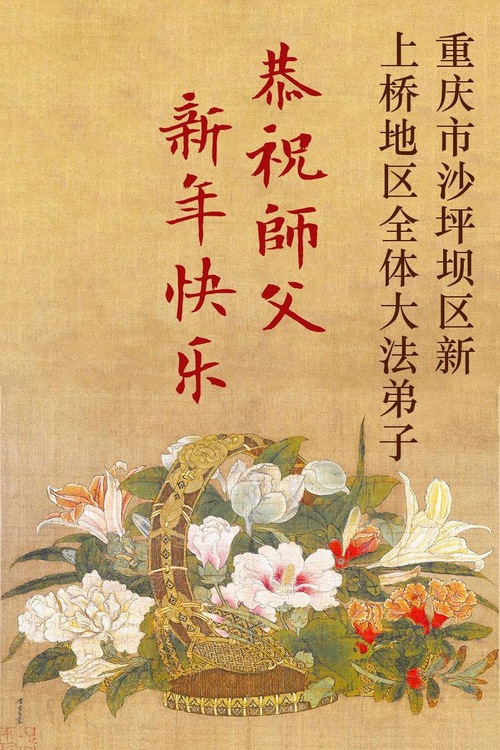 重庆市沙坪坝区新
上桥地区全体大法弟子
恭祝師父
新年快乐